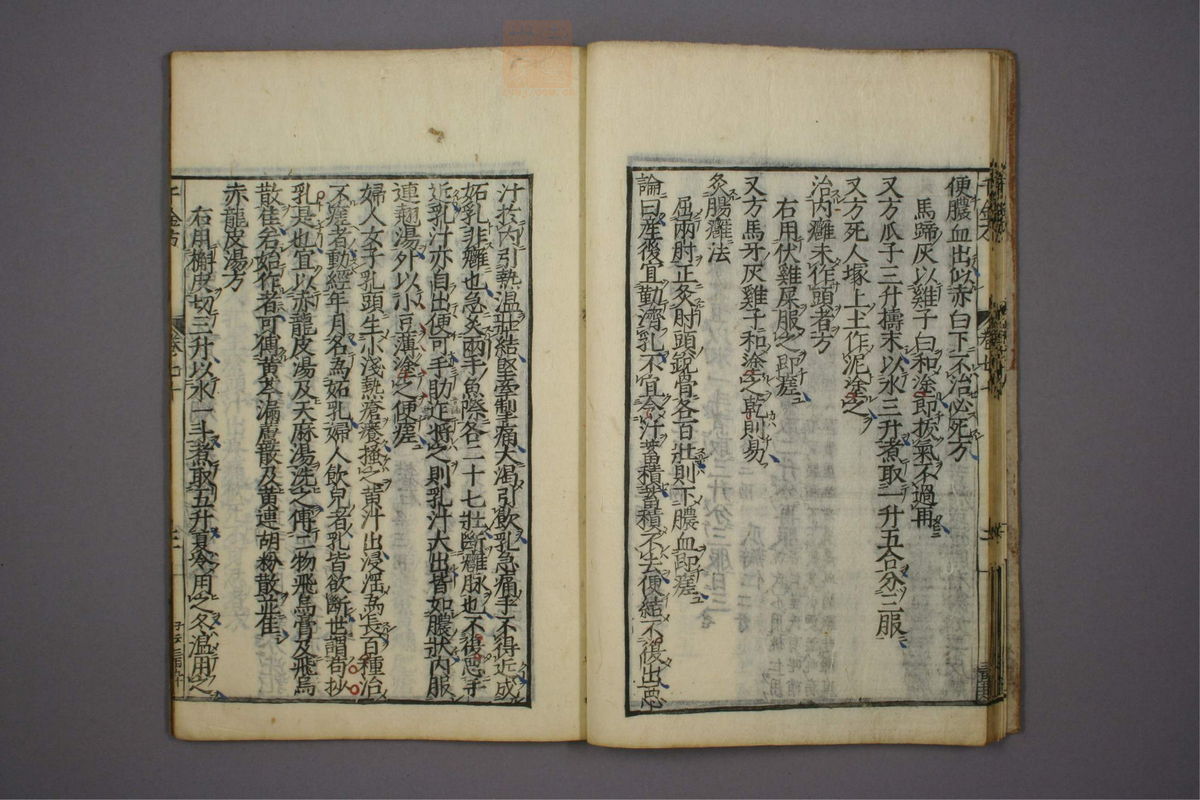 便膿血出以赤白下不治必死方
馬蹄灰以雞子白和塗即拔氣不過再
又方瓜子三升擣末以水三升煮取一升五合分三服
又方死人塚上土作泥塗之
治内癰未作頭者方
右用伏雞屎服之即瘥
又方馬牙灰雞子和塗之乾則易
灸腸癰法
屈兩肘正灸肘頭銳骨各百壯則下膿血即瘥
論曰產後宜勤濟乳不宜令汁蓄積蓄積不去便結不復出惡
汁於内引熱溫壯結堅牽掣痛大渴引飲乳急痛手不得近成
妬乳非癰也急灸兩手魚際各二十七壯斷癰脉也不復惡手
近乳汁亦自出便可手助迮將之則乳汁大出皆如膿狀内服
連翹湯外以小豆薄塗之便瘥
婦人女子乳頭生小淺熱瘡癢搔之黄汁出浸淫為長百種治
不瘥者動經年月名為妬乳婦人飲兒者乳皆欲斷世謂苟抄
乳是也宜以赤龍皮湯及天麻湯洗之傅二物飛烏膏及飛烏
散佳若始作者可傅黄芩漏蘆散及黄連胡粉散並佳
赤龍皮湯方
右用槲皮切三升以水一斗煮取五升夏冷用之冬温用之
千金方